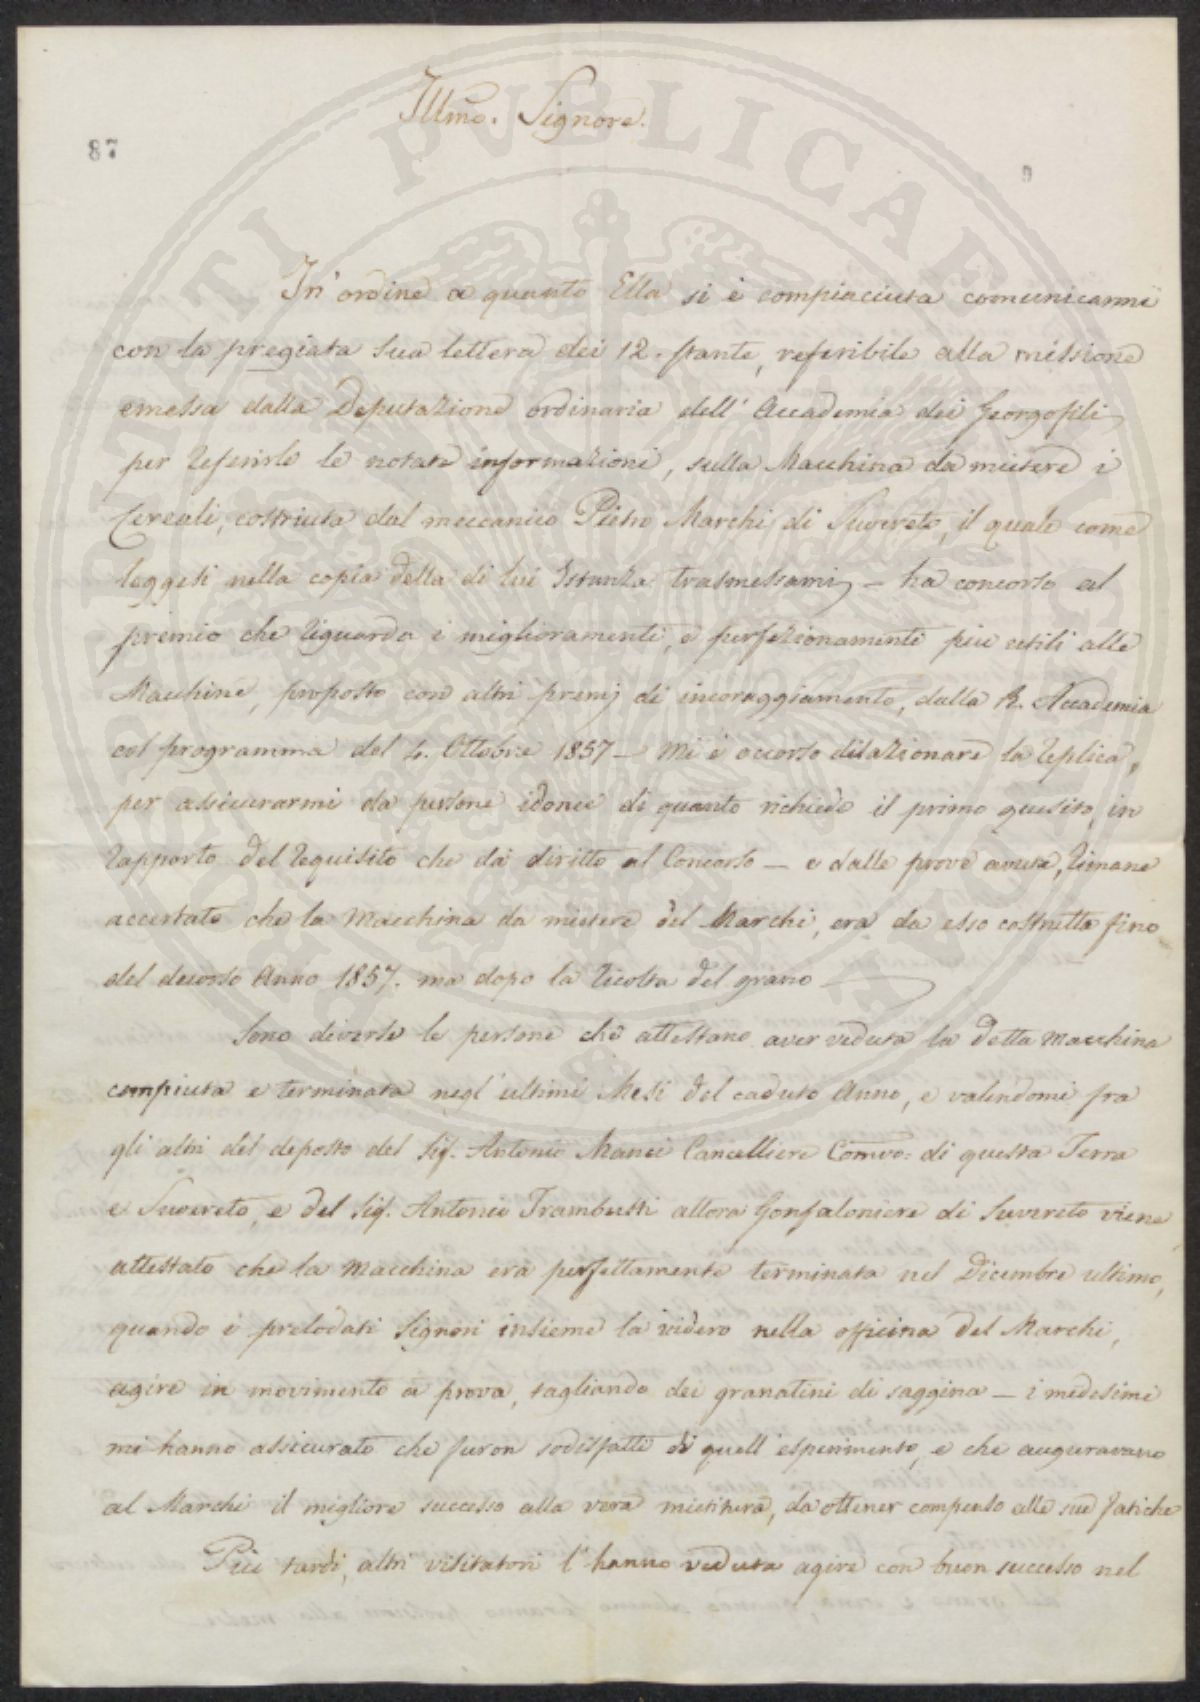 Illmo. Signore.
87
9
In ordine a quanto Ella si è compiaciuta comunicarmi
con la pregiata sua lettera dei 12. stante, referibile alla missione
emessa dalla Deputazione ordinaria dell' Accademia dei Georgofili
per referirle le notate informazioni, sulla Macchina da mietere i
Cereali, costruita dal meccanico Pietro Marchi di Suvereto, il quale come
leggesi nella copia della di lui Istanza trasmessami, – ha concorso al
premio che riguarda i miglioramenti, e perfezionamenti più utili alle
Macchine, proposto con altri premj di incoraggiamento, dalla R. Accademia
col programma del 4. Ottobre 1857 – Mi è occorso dilazionare la replica,
per assicurarmi da persone idonee di quanto richiede il primo quesito, in
rapporto del requisito che dà diritto al Concorso – e dalle prove avute, rimane
accertato che la Macchina da mietere del Marchi, era da esso costrutta fino
del decorso Anno 1857. ma dopo la ricolta del grano
Sono diverse le persone che attestano aver veduta la detta Macchina
compiuta e terminata negl' ultimi Mesi del caduto Anno, e valendomi fra
gli altri del deposto del Sig. Antonio Manei Cancelliere Comvo: di questa Terra
e Suvereto, e del Sig. Antonio Trambusti allora Gonfaloniere di Suvereto viene
attestato che la Macchina era perfettamente terminata nel Dicembre ultimo,
quando i prelodati Signori insieme la videro nella officina del Marchi,
agire in movimento a prova, tagliando dei granatini di saggina – i medesimi
mi hanno assicurato che furon sodisfatti di quell' esperimento, e che auguravano
al Marchi il migliore successo alla vera mietitura, da ottener compenso alle sue fatiche
Più tardi, altri visitatori l' hanno veduta agire con buon successo nel
PROSPERITATI PUBLICAE AUGENDAE